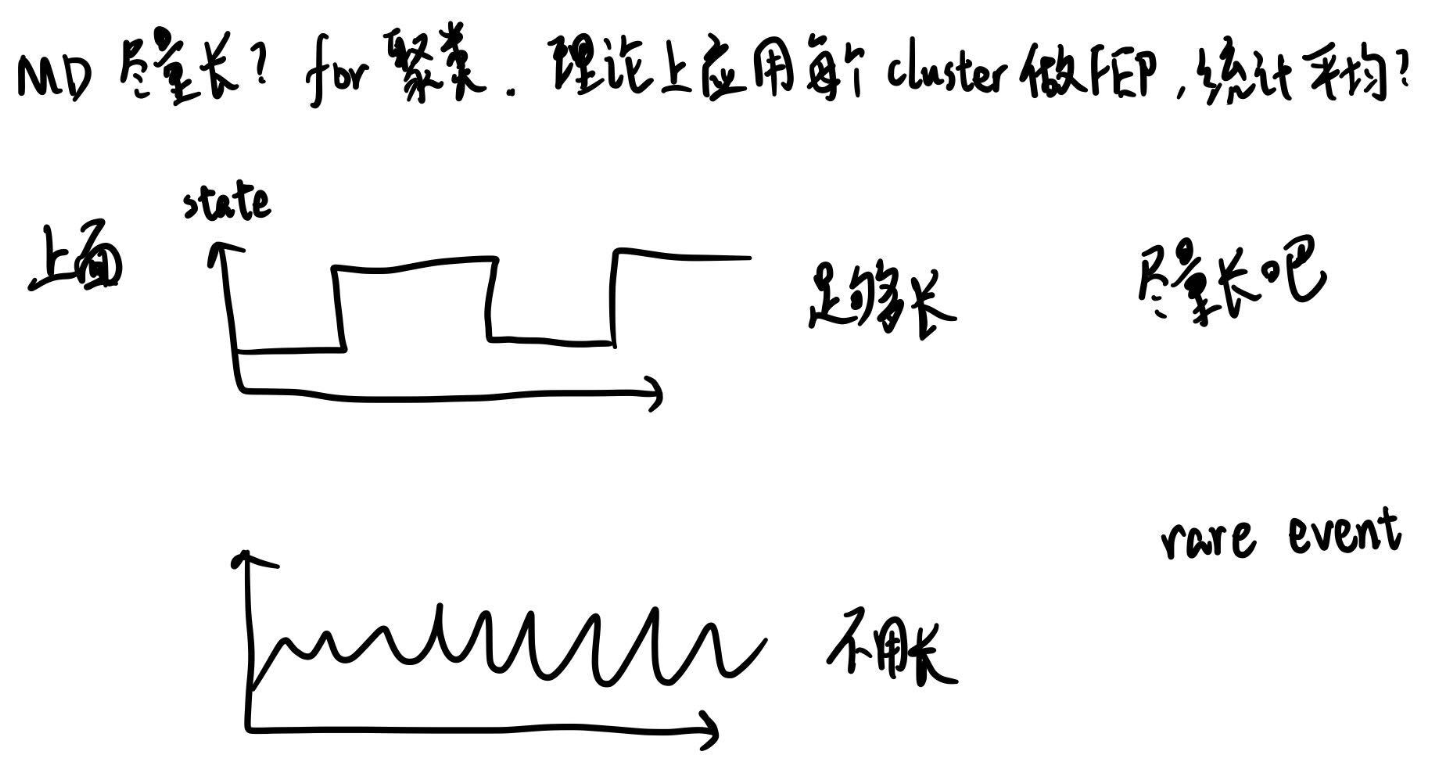 MD 尽量长? for 聚类. 理论上应用每个 cluster 做FEP,统计平均?
state
上面
足够长
尽量长吧
rare event
不用长